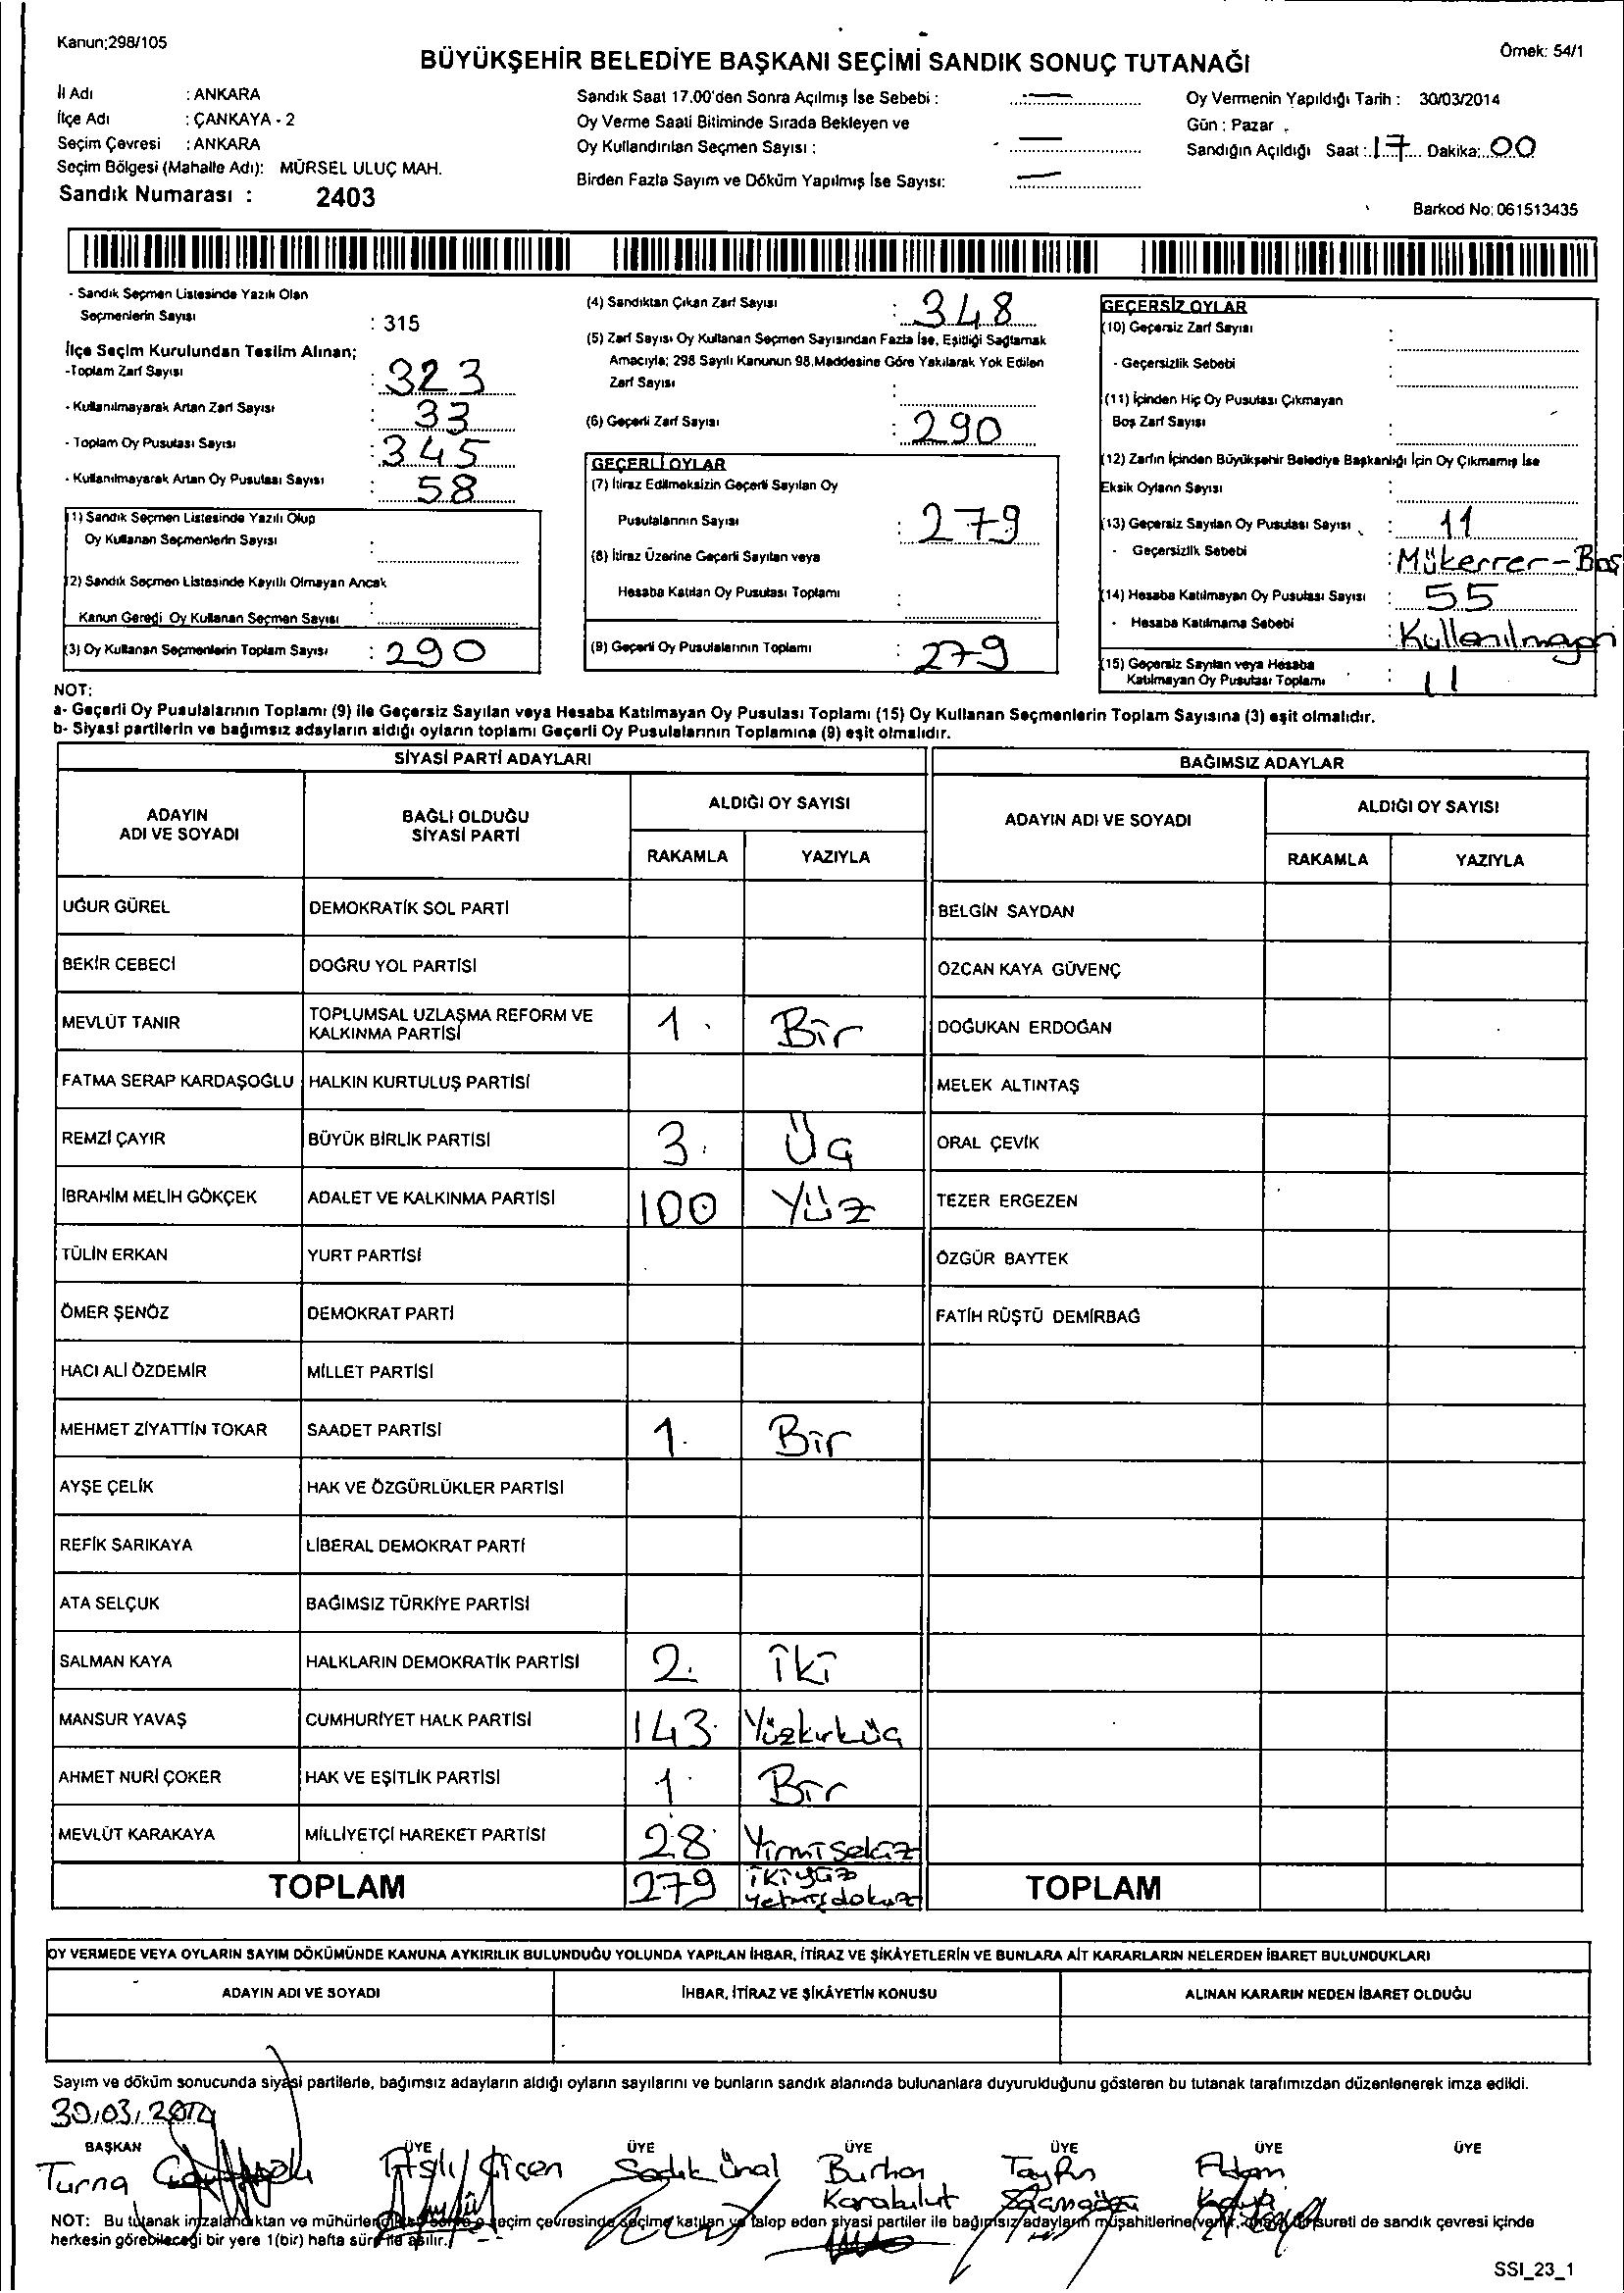 Kanun;298/105
Örnek: 54/1
BÜYÜKŞEHİR BELEDİYE BAŞKANI SEÇİMİ SANDIK SONUÇ TUTANAĞI
İl Adı : ANKARA
İlçe Adı : ÇANKAYA - 2
Seçim Çevresi : ANKARA
Seçim Bölgesi (Mahalle Adı): MÜRSEL ULUÇ MAH.
Sandık Numarası : 2403
Sandık Saat 17.00'den Sonra Açılmış İse Sebebi :
Oy Verme Saati Bitiminde Sırada Bekleyen ve
Oy Kullandırılan Seçmen Sayısı :
Birden Fazla Sayım ve Döküm Yapılmış İse Sayısı:
Oy Vermenin Yapıldığı Tarih : 30/03/2014
Gün : Pazar
Sandığın Açıldığı Saat : 17 Dakika: 00
Barkod No: 061513435
- Sandık Seçmen Listesinde Yazılı Olan
Seçmenlerin Sayısı : 315
İlçe Seçim Kurulundan Teslim Alınan;
-Toplam Zarf Sayısı : 323
- Kullanılmayarak Artan Zarf Sayısı : 33
- Toplam Oy Pusulası Sayısı : 345
- Kullanılmayarak Artan Oy Pusulası Sayısı : 58
(1) Sandık Seçmen Listesinde Yazılı Olup
Oy Kullanan Seçmenlerin Sayısı :
(2) Sandık Seçmen Listesinde Kayıtlı Olmayan Ancak
Kanun Gereği Oy Kullanan Seçmen Sayısı :
(3) Oy Kullanan Seçmenlerin Toplam Sayısı : 290
(4) Sandıktan Çıkan Zarf Sayısı : 348
(5) Zarf Sayısı Oy Kullanan Seçmen Sayısından Fazla İse, Eşitliği Sağlamak
Amacıyla; 298 Sayılı Kanunun 98.Maddesine Göre Yakılarak Yok Edilen
Zarf Sayısı :
(6) Geçerli Zarf Sayısı : 290
GEÇERLİ OYLAR
(7) İtiraz Edilmeksizin Geçerli Sayılan Oy
Pusulalarının Sayısı : 279
(8) İtiraz Üzerine Geçerli Sayılan veya
Hesaba Katılan Oy Pusulası Toplamı :
(9) Geçerli Oy Pusulalarının Toplamı : 279
GEÇERSİZ OYLAR
(10) Geçersiz Zarf Sayısı :
- Geçersizlik Sebebi :
(11) İçinden Hiç Oy Pusulası Çıkmayan
Boş Zarf Sayısı :
(12) Zarfın İçinden Büyükşehir Belediye Başkanlığı İçin Oy Çıkmamış İse
Eksik Oyların Sayısı :
(13) Geçersiz Sayılan Oy Pusulası Sayısı : 11
- Geçersizlik Sebebi : Mükerrer-Boş
(14) Hesaba Katılmayan Oy Pusulası Sayısı : 55
- Hesaba Katılmama Sebebi :
(15) Geçersiz Sayılan veya Hesaba
Katılmayan Oy Pusulası Toplamı : 11
NOT:
a- Geçerli Oy Pusulalarının Toplamı (9) ile Geçersiz Sayılan veya Hesaba Katılmayan Oy Pusulası Toplamı (15) Oy Kullanan Seçmenlerin Toplam Sayısına (3) eşit olmalıdır.
b- Siyasi partilerin ve bağımsız adayların aldığı oyların toplamı Geçerli Oy Pusulalarının Toplamına (9) eşit olmalıdır.
SİYASİ PARTİ ADAYLARI
BAĞIMSIZ ADAYLAR
ADAYIN
ADI VE SOYADI
BAĞLI OLDUĞU
SİYASİ PARTİ
ALDIĞI OY SAYISI
RAKAMLA YAZIYLA
ADAYIN ADI VE SOYADI
ALDIĞI OY SAYISI
RAKAMLA YAZIYLA
UĞUR GÜREL DEMOKRATİK SOL PARTİ BELGİN SAYDAN
BEKİR CEBECİ DOĞRU YOL PARTİSİ ÖZCAN KAYA GÜVENÇ
MEVLÜT TANIR TOPLUMSAL UZLAŞMA REFORM VE
KALKINMA PARTİSİ 1 Bir DOĞUKAN ERDOĞAN
FATMA SERAP KARDAŞOĞLU HALKIN KURTULUŞ PARTİSİ MELEK ALTINTAŞ
REMZİ ÇAYIR BÜYÜK BİRLİK PARTİSİ 3 Üç ORAL ÇEVİK
İBRAHİM MELİH GÖKÇEK ADALET VE KALKINMA PARTİSİ 100 Yüz TEZER ERGEZEN
TÜLİN ERKAN YURT PARTİSİ ÖZGÜR BAYTEK
ÖMER ŞENÖZ DEMOKRAT PARTİ FATİH RÜŞTÜ DEMİRBAĞ
HACI ALİ ÖZDEMİR MİLLET PARTİSİ
MEHMET ZİYATTİN TOKAR SAADET PARTİSİ 1 Bir
AYŞE ÇELİK HAK VE ÖZGÜRLÜKLER PARTİSİ
REFİK SARIKAYA LİBERAL DEMOKRAT PARTİ
ATA SELÇUK BAĞIMSIZ TÜRKİYE PARTİSİ
SALMAN KAYA HALKLARIN DEMOKRATİK PARTİSİ 2 iki
MANSUR YAVAŞ CUMHURİYET HALK PARTİSİ 143 Yüzkırküç
AHMET NURİ ÇOKER HAK VE EŞİTLİK PARTİSİ 1 Bir
MEVLÜT KARAKAYA MİLLİYETÇİ HAREKET PARTİSİ 28 Yirmisekiz
TOPLAM 279 ikiyüz
yetmişdokuz
TOPLAM
OY VERMEDE VEYA OYLARIN SAYIM DÖKÜMÜNDE KANUNA AYKIRILIK BULUNDUĞU YOLUNDA YAPILAN İHBAR, İTİRAZ VE ŞİKÂYETLERİN VE BUNLARA AİT KARARLARIN NELERDEN İBARET BULUNDUKLARI
ADAYIN ADI VE SOYADI İHBAR, İTİRAZ VE ŞİKÂYETİN KONUSU ALINAN KARARIN NEDEN İBARET OLDUĞU
Sayım ve döküm sonucunda siyasi partilerle, bağımsız adayların aldığı oyların sayılarını ve bunların sandık alanında bulunanlara duyurulduğunu gösteren bu tutanak tarafımızdan düzenlenerek imza edildi.
30/03/2014
BAŞKAN ÜYE ÜYE ÜYE ÜYE ÜYE ÜYE
Turna Aslı Çiçen Sadık Ünal Burhan Tayfun Adem
Karabulut Kaya
NOT: Bu tutanak imzalandıktan ve mühürlendikten sonra o seçim çevresinde seçime katılan ve talep eden siyasi partiler ile bağımsız adayların müşahitlerine sureti de sandık çevresi içinde
herkesin görebileceği bir yere 1(bir) hafta süre ile asılır.
SSI_23_1